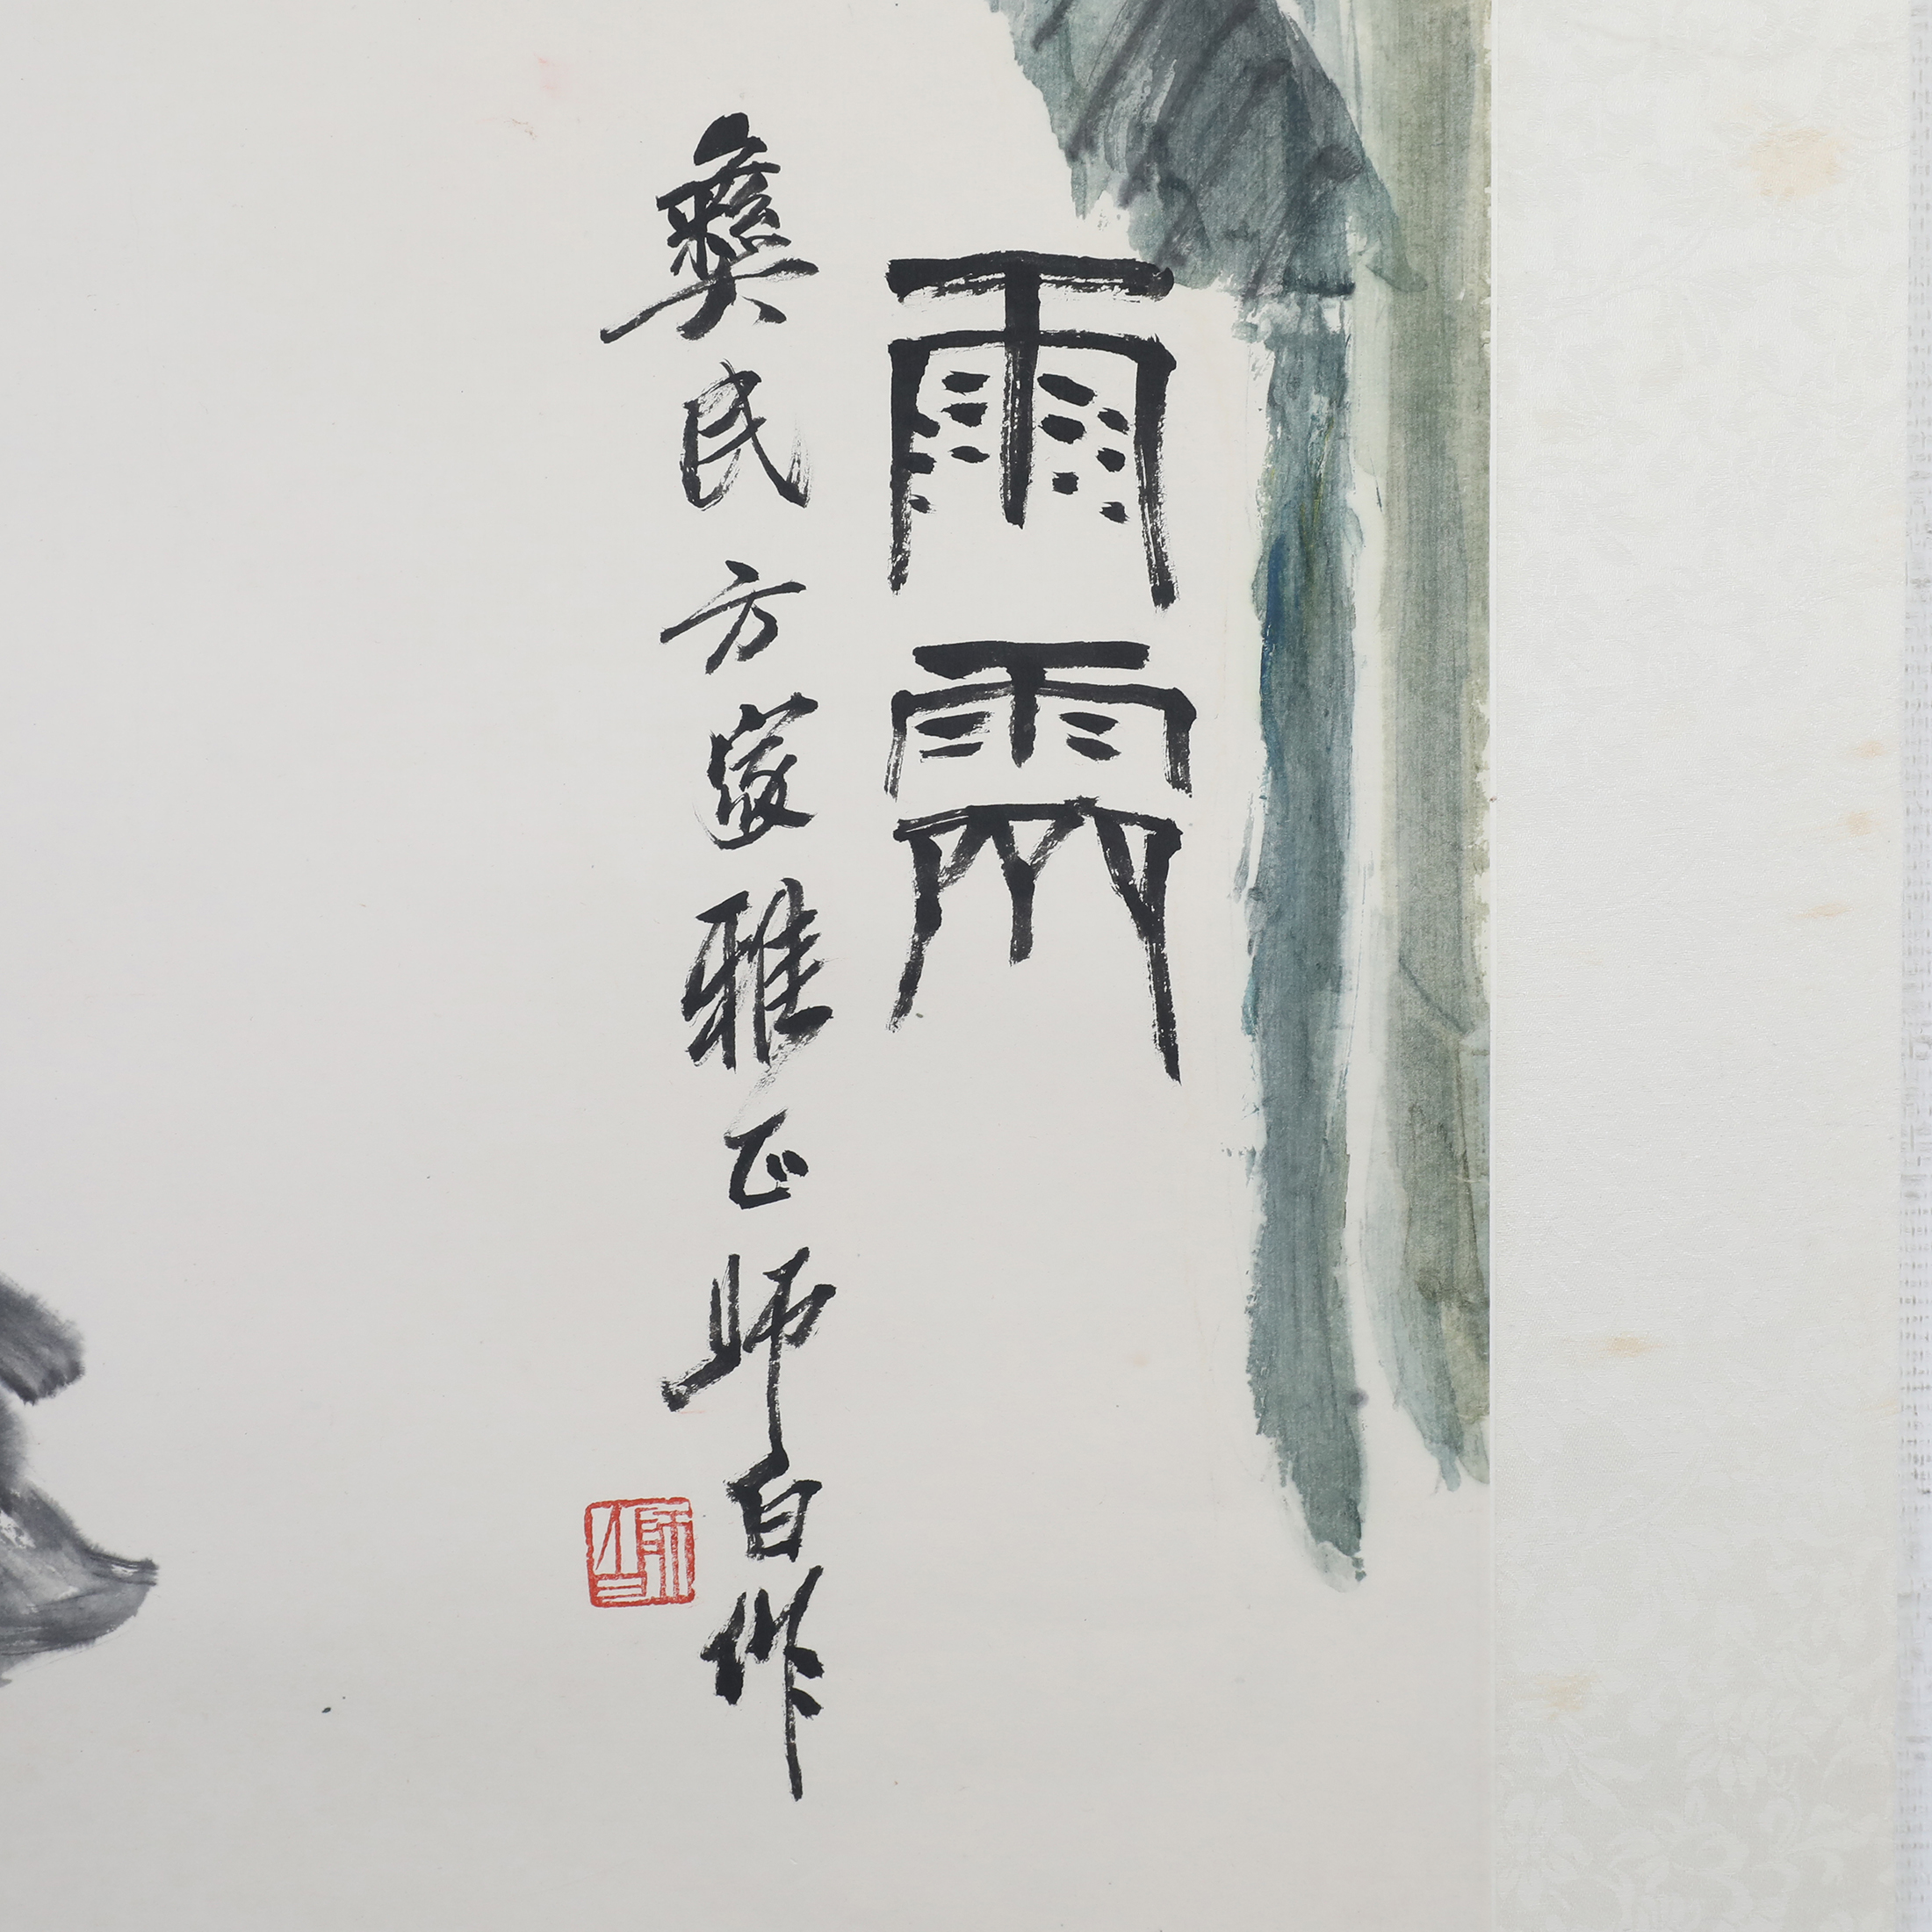 雨霽
彝民方家雅正師白作